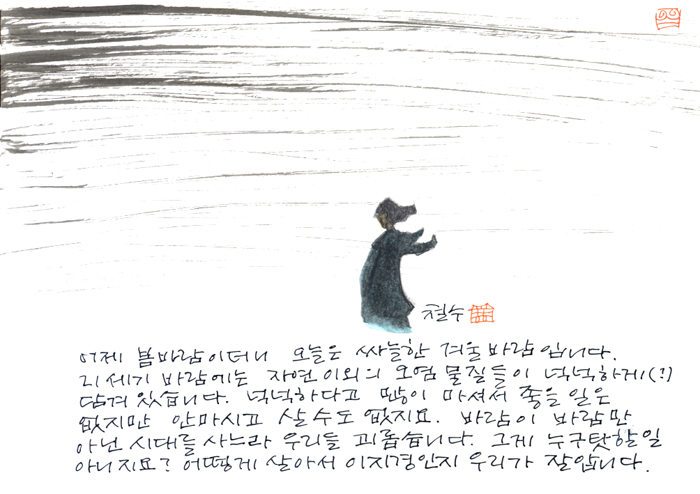 철수
어제 봄바람이더니 오늘은 싸늘한 겨울 바람입니다.
21세기 바람에는 자연 이외의 오염 물질들이 넉넉하게(!)
담겨 있습니다. 넉넉하다고 많이 마셔서 좋을 일은
없지만 안마시고 살 수도 없지요. 바람이 바람만
아닌 시대를 사느라 우리들 괴롭습니다. 그게 누구탓할 일
아니지요? 어떻게 살아서 이지경인지 우리가 잘 압니다.